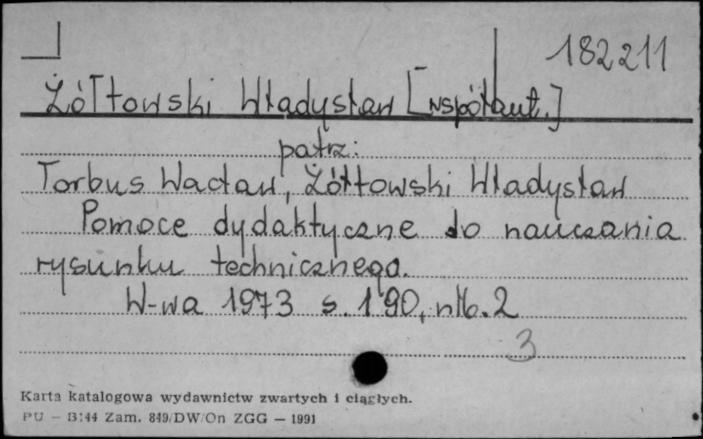 182211
Żółtowski Władysław [współaut.]
patrz:
Torbus Wacław, Żółtowski Władysław
Pomoce dydaktyczne do nauczania
rysunku technicznego.
W-wa 1973 s. 190, nlb. 2
3
Karta katalogowa wydawnictw zwartych i ciągłych.
PU - B144 Zam. 849/DW/On ZGG — 1991